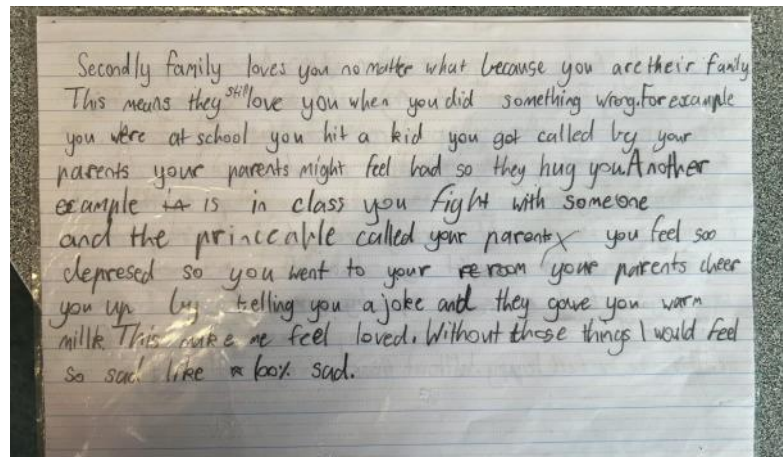 Secondly family loves you no matter what because you are their family
This means they still love you when you did something wrong. For example
you were at school you hit a kid you got called by your
parents your parents might feel bad so they hug you. Another
example is in class you fight with someone
and the princeable called your parent you feel soo
depresed so you went to your room your parents cheer
you up by telling you a joke and they gave you warm
millk. This make me feel loved. Without those things I would feel
so sad like 100% sad.